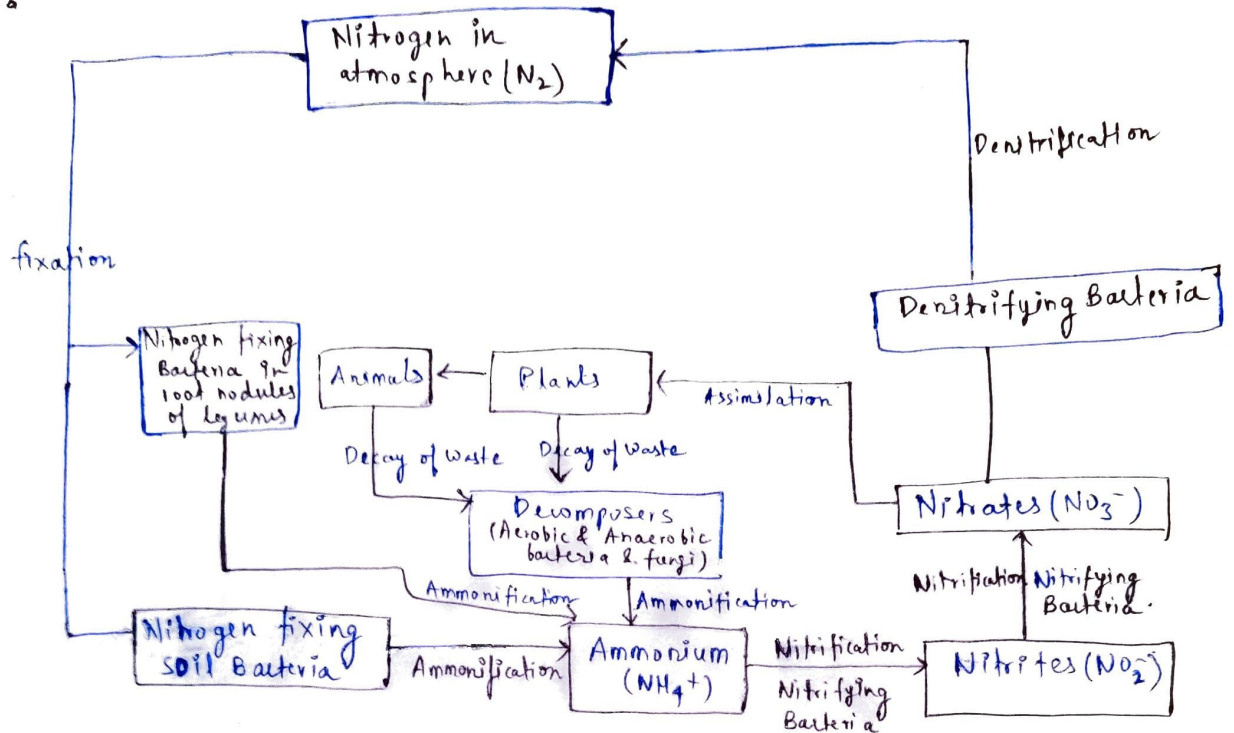 Nitrogen in
atmosphere (N2)
Denitrification
fixation
Denitrifying Bacteria
Nitrogen fixing
Bacteria in
root nodules
of legumes
Animals
Plants
Assimilation
Decay of waste
Decay of waste
Decomposers
(Aerobic & Anaerobic
bacteria & fungi)
Nitrates (NO3⁻)
Nitrification
Nitrifying
Bacteria.
Ammonification
Ammonification
Nitrogen fixing
soil Bacteria
Ammonification
Ammonium
(NH4+)
Nitrification
Nitrifying
Bacteria
Nitrites (NO2⁻)